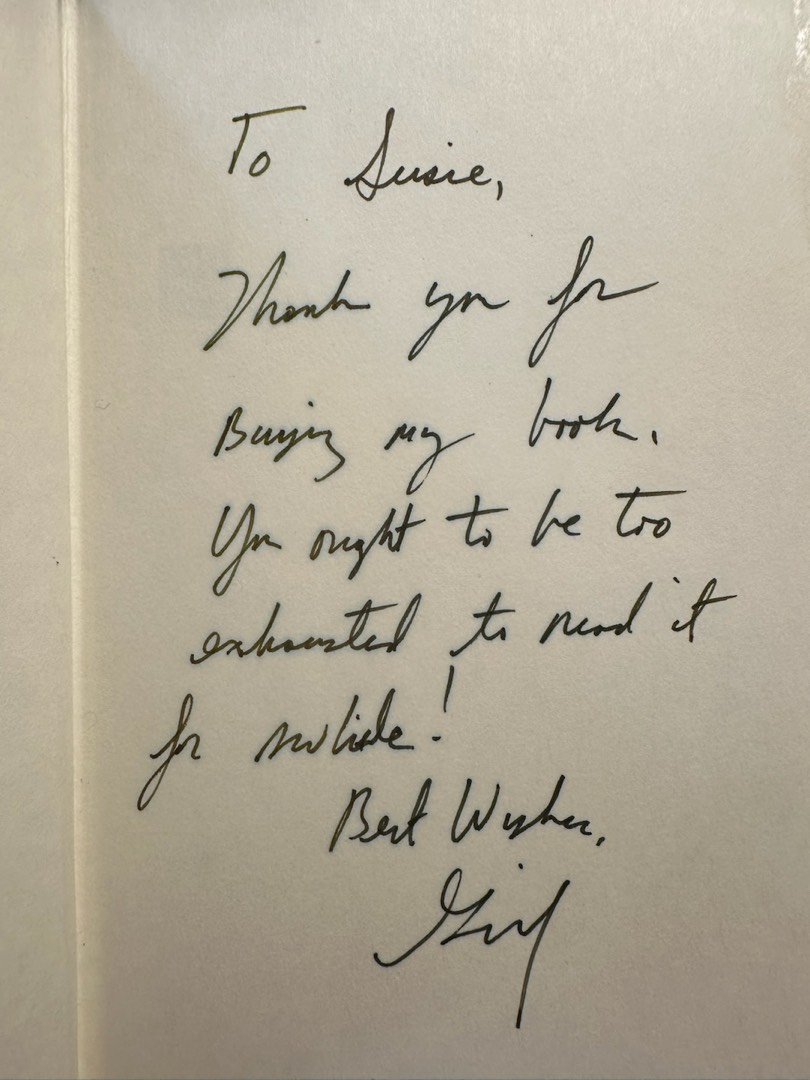 To Susie,
Thank you for
Buying my book.
You ought to be too
exhausted to read it
for awhile!
Best Wishes,